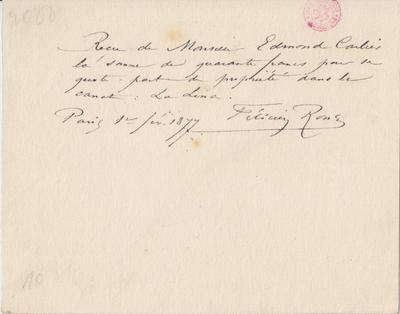 2080
Recu de Monsieur Edmond Carlier
la somme de quarante francs pour sa
quote-part de propriété dans le
canot: La Lina.
Paris 1er fév. 1877 Félicien Rops
10